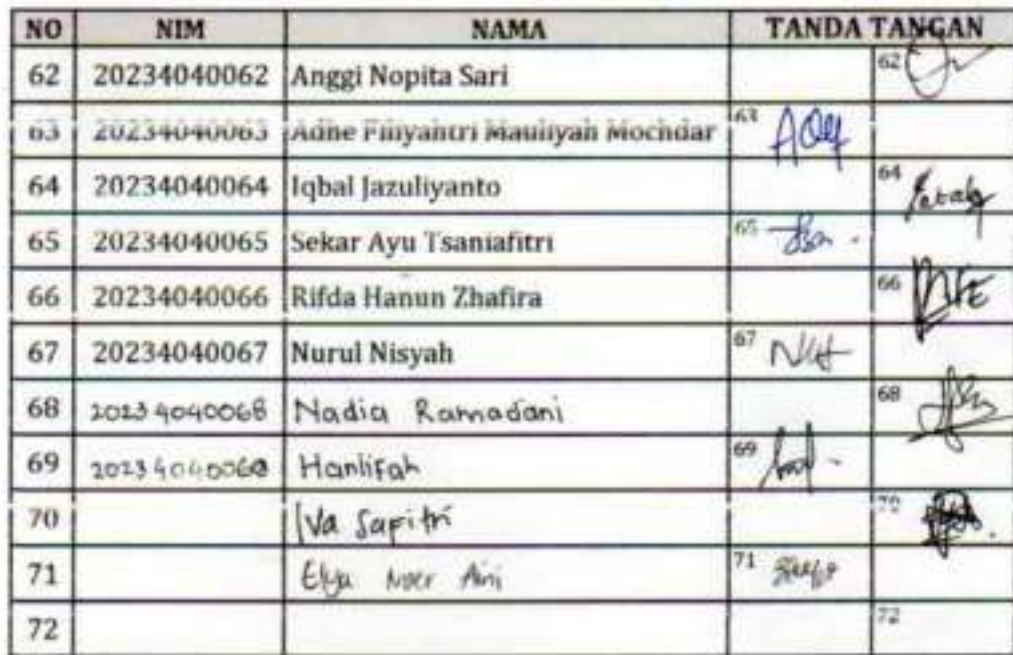 NO NIM NAMA TANDA TANGAN
62 20234040062 Anggi Nopita Sari 62
63 20234040063 Adhe Fitiyahtri Mauliyah Mochdar 63
64 20234040064 Iqbal Jazuliyanto 64
65 20234040065 Sekar Ayu Tsaniafitri 65
66 20234040066 Rifda Hanun Zhafira 66
67 20234040067 Nurul Nisyah 67
68 20234040068 Nadia Ramadani 68
69 Hanlifah 69
70 Iva Sapitri 70
71 Elya Noer Aini 71
72 72